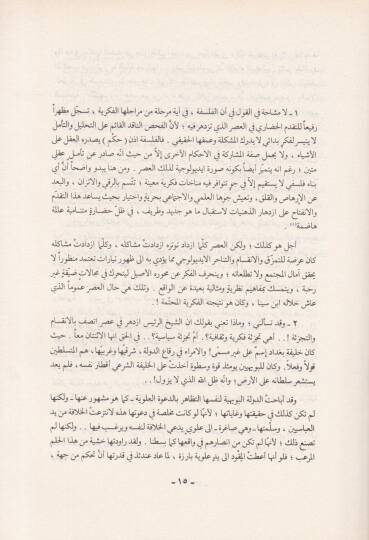 ١ ـ لا مشاحة في القول في أن الفلسفة ، في أية مرحلة من مراحلها الفكرية ، تسجّل مظهراً
رفيعاً للتقدم الحضاري في العصر الذي تزدهر فيه ؛ لأنّ الفحص الناقد القائم على التحليل والتأمل
لا يتيسر لفكر بدائي لا يدرك المشكلة وعمقها الحقيقي . فالفلسفة اذن ( حكم ) يصدره العقل على
الأشياء ، ولا يحمل صفة المشاركة في الاحكام الأخرى إلّا من حيث أنّه صادر عن تأمل عقلي
متين ؛ رغم انه يتميّز أيضاً بكونه صورة ايديولوجية لذلك العصر . ومن هنا يبدو واضحاً أنّ أي
بناء فلسفي لا يستقيم إلّا في جو تتوافر فيه مناخات فكرية معينة ؛ تتّسم بالرقي والاتزان ، والبعد
عن الإرهاص والقلق ، وتعيش جوها العلمي والاجتماعي بحرية واختيار بحيث يساعد هذا التقدّم
والانفتاح على ازدهار الذهنيات لاستقبال ما هو جديد وطريف ، في ظلّ حضارة متنامية علمّة
هاضمة
أجل هو كذلك ؛ ولكن العصر كلّما ازداد توتره ازدادتْ مشاكله ، وكلّما ازدادتْ مشاكله
كان عرضة للتمزّق والانقسام والتناحر الايديولوجي مما يؤدي به الى ظهور تيارات تعتمد منظوراً لا
يحقق آمال المجتمع ولا تطلعاته ؛ وينحرف الفكر عن محوره الأصيل ليتحرك في مجالات ضيقةٍ غير
رحبة ، ويتمسك بمفاهيم نظريةٍ ومثاليةٍ بعيدة عن الواقع . وتلك هي حال العصر عموماً الذي
عاش خلاله ابن سينا ، وكان هو نتيجته الفكرية المحتّمة !
٢ ـ وقد تسألني ؛ وماذا تعني بقولك ان الشيخ الرئيس ازدهر في عصر اتصف بالانقسام
والتجزئة !.. أهي تجزئة فكرية وثقافية؟. أم تجزئة سياسية؟.. في الحق انها الاثنتان معاً . حيث
كان خليفة بغداد إسم على غير مسمّى! والامراء في رقاع الدولة ، شرقيّها وغربيّها، هم المتسلطين
قولاً وفعلاً. وكان للبويهيين يومئذ قوة وسطوة أخذتْ على الخليفة الشرعي أقطار نفسه، فلم يعد
يستشعر سلطانه على الأرض؛ وانّه ظل الله الذي لا يزول !..
وقد أباحتْ الدولة البويهية لنفسها التظاهر بالدعوة العلوية ـ كما هو مشهور عنها ـ ولكنها
لم تكن كذلك في حقيقتها وغاياتها ؛ لأنّها لو كانت مخلصة في دعوتها هذه لانتزعتْ الخلافة من يد
العباسيين ، وسلّمتها ـ وهي صاغرة ـ الى علوي يدعي الخلافة لنفسه ويرغب فيها .. ولكنها لم
تصنع ذلك ؛ لأنّها لم تكن من انصارهم في واقعها كما بسطنا . ولقد راودتها خشية من هذا الحلم
المرعب ؛ فلو أنها أعطتْ المِقْود الى يدٍ علوية بارزة ، لما عاد عندئذ في قدرتها أنْ تحكم من جهة ،
ـ ١٥ ـ